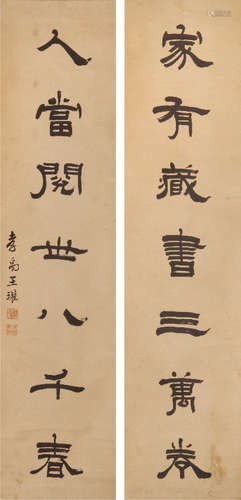 家有藏書三萬卷
人當閱世八千春
孝禹王瓘